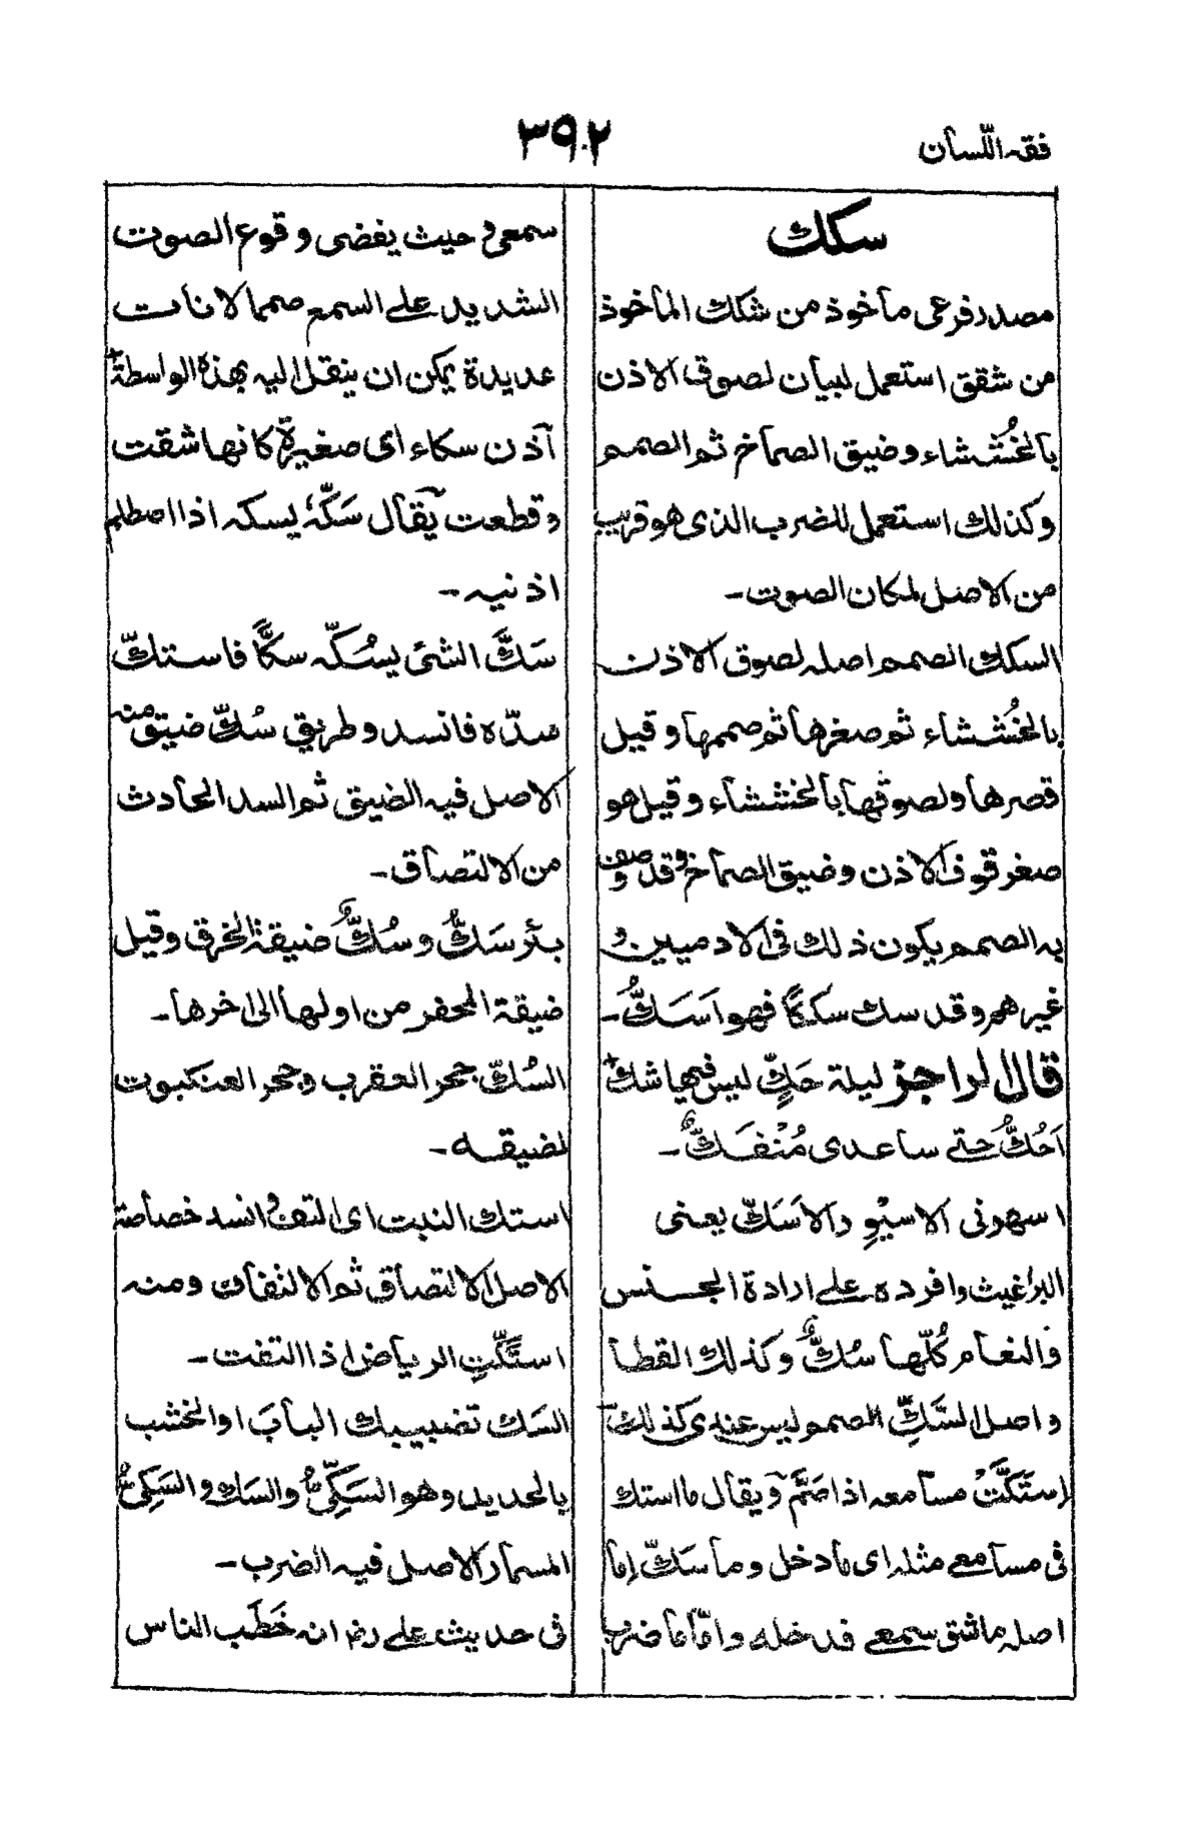 فقه اللّسان
٣٩٠٢
سكك
مصدر فرعى مأخوذ من شكك المأخوذ
من شقق استعمل لبيان لصوق الاذن
بالخُششاء وضيق الصماخ ثم الصمم
وكذلك استعمل للضرب الذى هو قريب
من الاصل لمكان الصوت -
السكك الصمم اصله لصوق الاذن
بالخُششاء ثم صغرها ثم صممها وقيل
قصرها ولصوقها بالخششاء وقيل هو
صغر قوف الاذن وضيق الصماخ وقد وصف
به الصمم يكون ذلك فى الادميين و
غيرهم وقد سك سككًا فهو اَسَكُّ -
قال الراجز ليلة حَكٍّ ليس فيها شك
اَحُكُّ حتے ساعدى مُنْفَكٌّ -
اسهرنى الاسيْوِد الاَسَكّ يعنى
البراغيث وافرده علے ارادة الجنس
والنعام كُلّها سُكٌّ وكذلك القطا
واصل السَّكِّ الصمم وليس عندى كذلك
اِستَكَّتْ مسامعه اذا صَمَّ ويقال ما استك
فى مسامعے مثله اى ما دخل وما سَكّ إما
اصله ما شق سمعے فدخله وامّا ما ضرب
سمعى حيث يفضى وقوع الصوت
الشديد علے السمع صمما لانات
عديدة يمكن ان ينقل اليه بهذه الواسطة
آذن سكاء اى صغيرة كانها شقت
وقطعت يقال سَكّهٗ يسكه اذا اصطلم
اذنيه -
سَكَّ الشئ يسُكّه سكًّا فاستكّ
سدّه فانسد وطريق سُكّ ضيق منه
الاصل فيه الضيق ثم السد الحادث
من الالتصاق -
بئر سَكٌّ وسُكٌّ ضيقة الخرق وقيل
ضيقة المحفر من اولها الى اخرها -
السُكّ جحر العقرب وجحر العنكبوت
لضيقه -
استك النبت اى التف وانسد خصاصة
الاصل الالتصاق ثم الالتفاف ومنه
استَكَّتِ الرياض اذا التفت -
السَك تضبيبك البابَ او الخشب
بالحديد وهو السَكِّىّ والسَك والسَكِىّ
المسمار الاصل فيه الضرب -
فى حديث علے رض انه خَطَب الناس